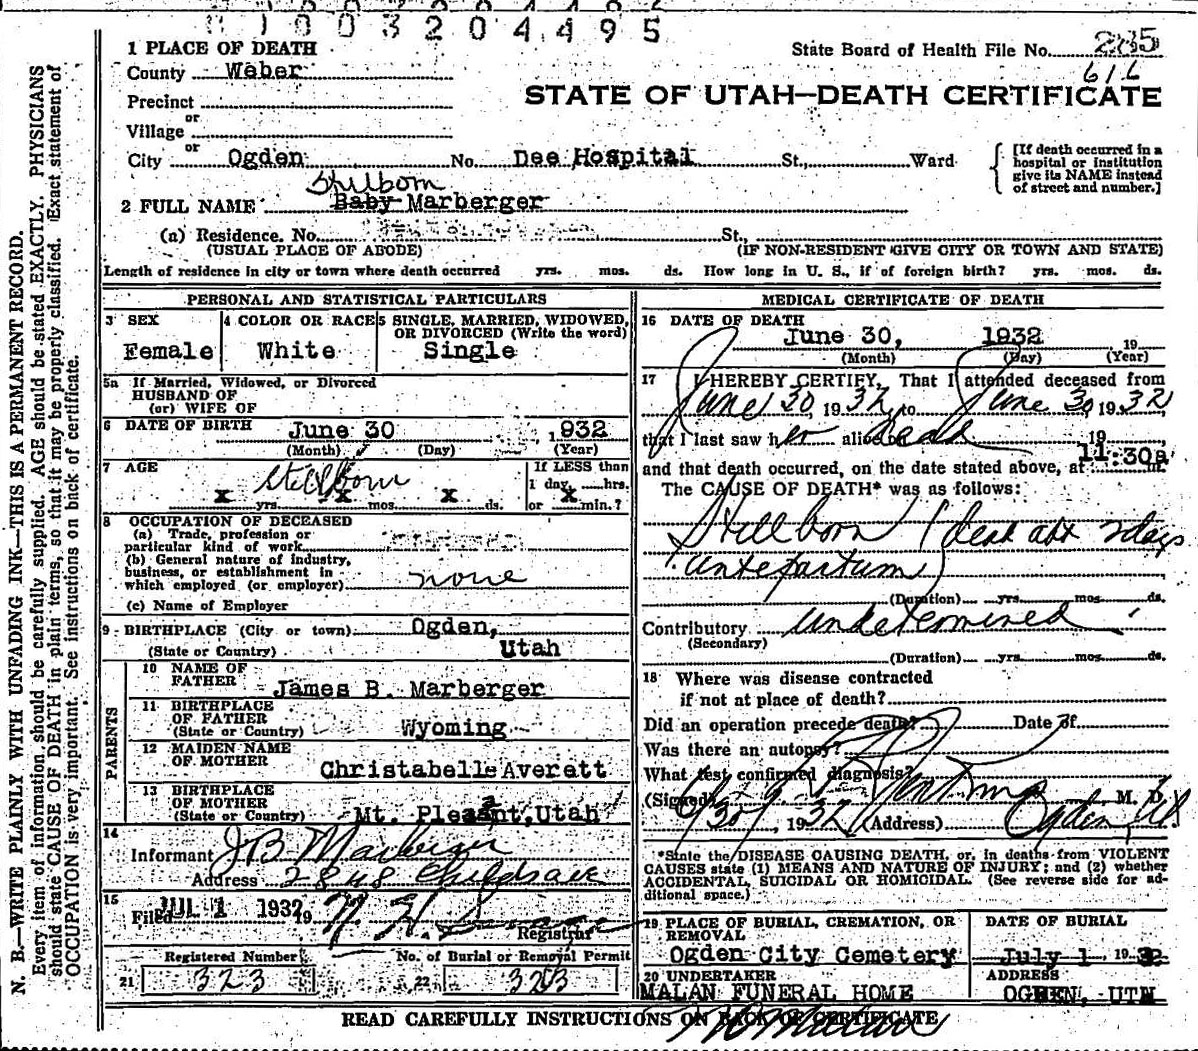 1003204495
1 PLACE OF DEATH
State Board of Health File No. 285
County Weber
616
Precinct
STATE OF UTAH—DEATH CERTIFICATE
or
Village
or
City Ogden No. Dee Hospital St., Ward
[If death occurred in a
hospital or institution
give its NAME instead
of street and number.]
Stilborn
2 FULL NAME Baby Marberger
(a) Residence. No. St.,
(USUAL PLACE OF ABODE) (IF NON-RESIDENT GIVE CITY OR TOWN AND STATE)
Length of residence in city or town where death occurred yrs. mos. ds. How long in U. S., if of foreign birth? yrs. mos. ds.
PERSONAL AND STATISTICAL PARTICULARS
3 SEX
Female
4 COLOR OR RACE
White
5 SINGLE, MARRIED, WIDOWED,
OR DIVORCED (Write the word)
Single
5a If Married, Widowed, or Divorced
HUSBAND OF
(or) WIFE OF
6 DATE OF BIRTH June 30, 1932
(Month) (Day) (Year)
7 AGE stillborn
x yrs. x mos. x ds.
If LESS than
1 day, hrs.
or x min.?
8 OCCUPATION OF DECEASED
(a) Trade, profession or
particular kind of work
(b) General nature of industry,
business, or establishment in
which employed (or employer) none
(c) Name of Employer
9 BIRTHPLACE (City or town) Ogden,
(State or Country) Utah
PARENTS
10 NAME OF
FATHER James B. Marberger
11 BIRTHPLACE
OF FATHER
(State or Country) Wyoming
12 MAIDEN NAME
OF MOTHER Christabelle Averett
13 BIRTHPLACE
OF MOTHER
(State or Country) Mt. Pleasant, Utah
14
Informant J B Marberger
Address 2848 Childs ave
15
Filed JUL 1 1932 19
Registrar
Registered Number
21 323
No. of Burial or Removal Permit
22 323
MEDICAL CERTIFICATE OF DEATH
16 DATE OF DEATH
June 30, 1932 19
(Month) (Day) (Year)
17 I HEREBY CERTIFY, That I attended deceased from
June 30, 1932, to June 30 1932
that I last saw her alive on dead 19
and that death occurred, on the date stated above, at 11:30a m.
The CAUSE OF DEATH* was as follows:
Stillborn (dead abt 2 days
antepartum)
(Duration) yrs. mos. ds.
Contributory undetermined
(Secondary)
(Duration) yrs. mos. ds.
18 Where was disease contracted
if not at place of death?
Did an operation precede death? Date of
Was there an autopsy?
What test confirmed diagnosis?
(Signed) M. D.
6/30, 1932 (Address) Ogden, Ut
*State the DISEASE CAUSING DEATH, or, in deaths from VIOLENT
CAUSES state (1) MEANS AND NATURE OF INJURY; and (2) whether
ACCIDENTAL, SUICIDAL OR HOMICIDAL. (See reverse side for ad-
ditional space.)
19 PLACE OF BURIAL, CREMATION, OR
REMOVAL
Ogden City Cemetery
DATE OF BURIAL
July 1, 1932
20 UNDERTAKER
MALAN FUNERAL HOME
ADDRESS
OGDEN, UTAH
READ CAREFULLY INSTRUCTIONS ON BACK OF CERTIFICATE
N. B.—WRITE PLAINLY WITH UNFADING INK—THIS IS A PERMANENT RECORD.
Every item of information should be carefully supplied. AGE should be stated EXACTLY. PHYSICIANS
should state CAUSE OF DEATH in plain terms, so that it may be properly classified. Exact statement of
OCCUPATION is very important. See instructions on back of certificate.